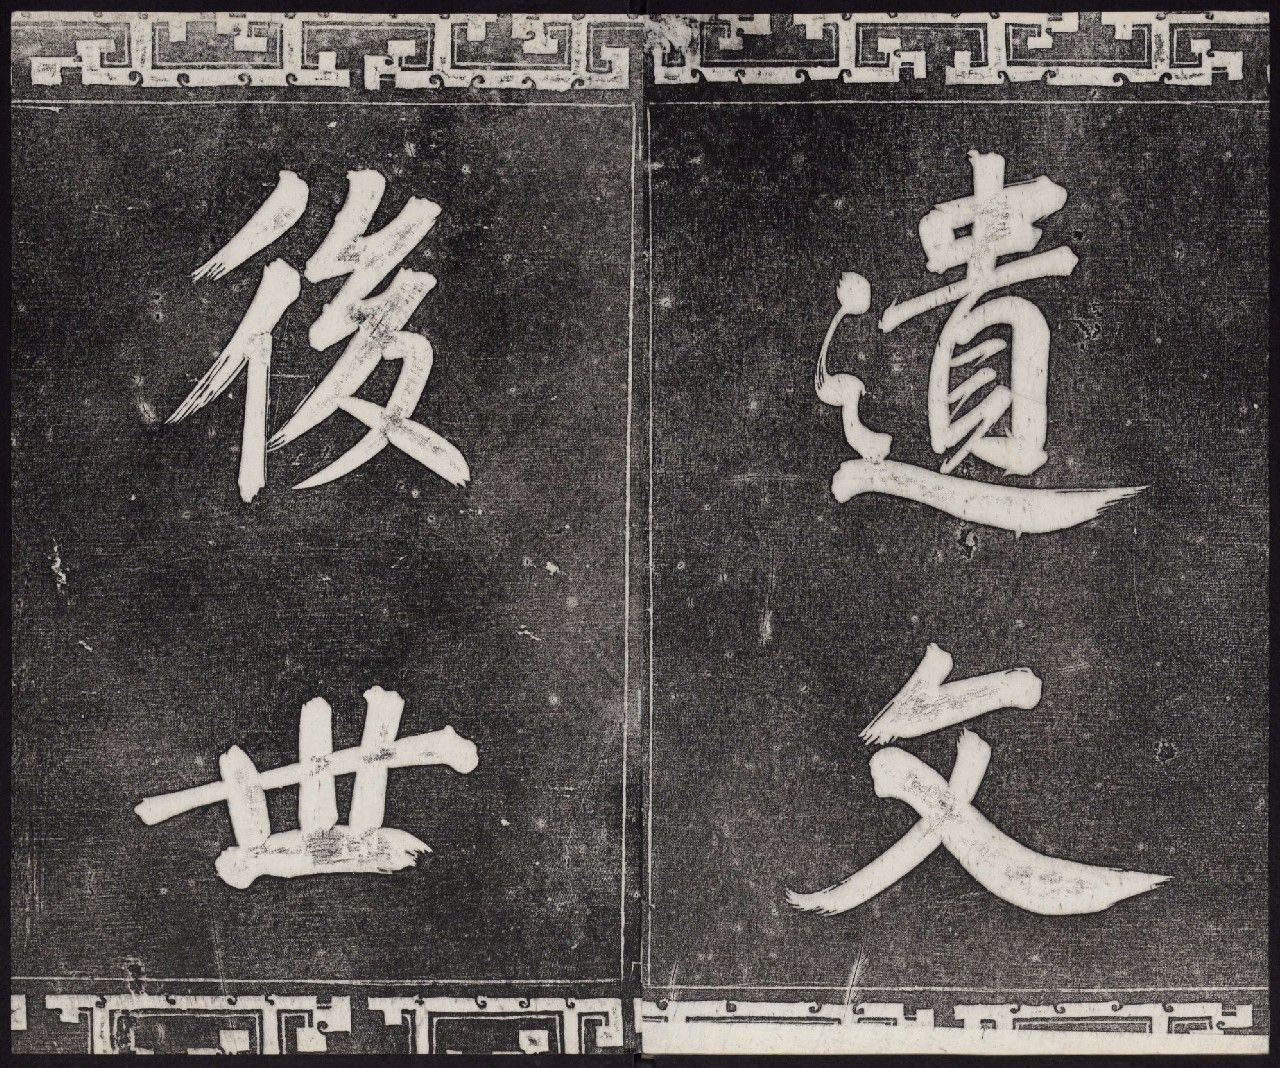 遺文
後世